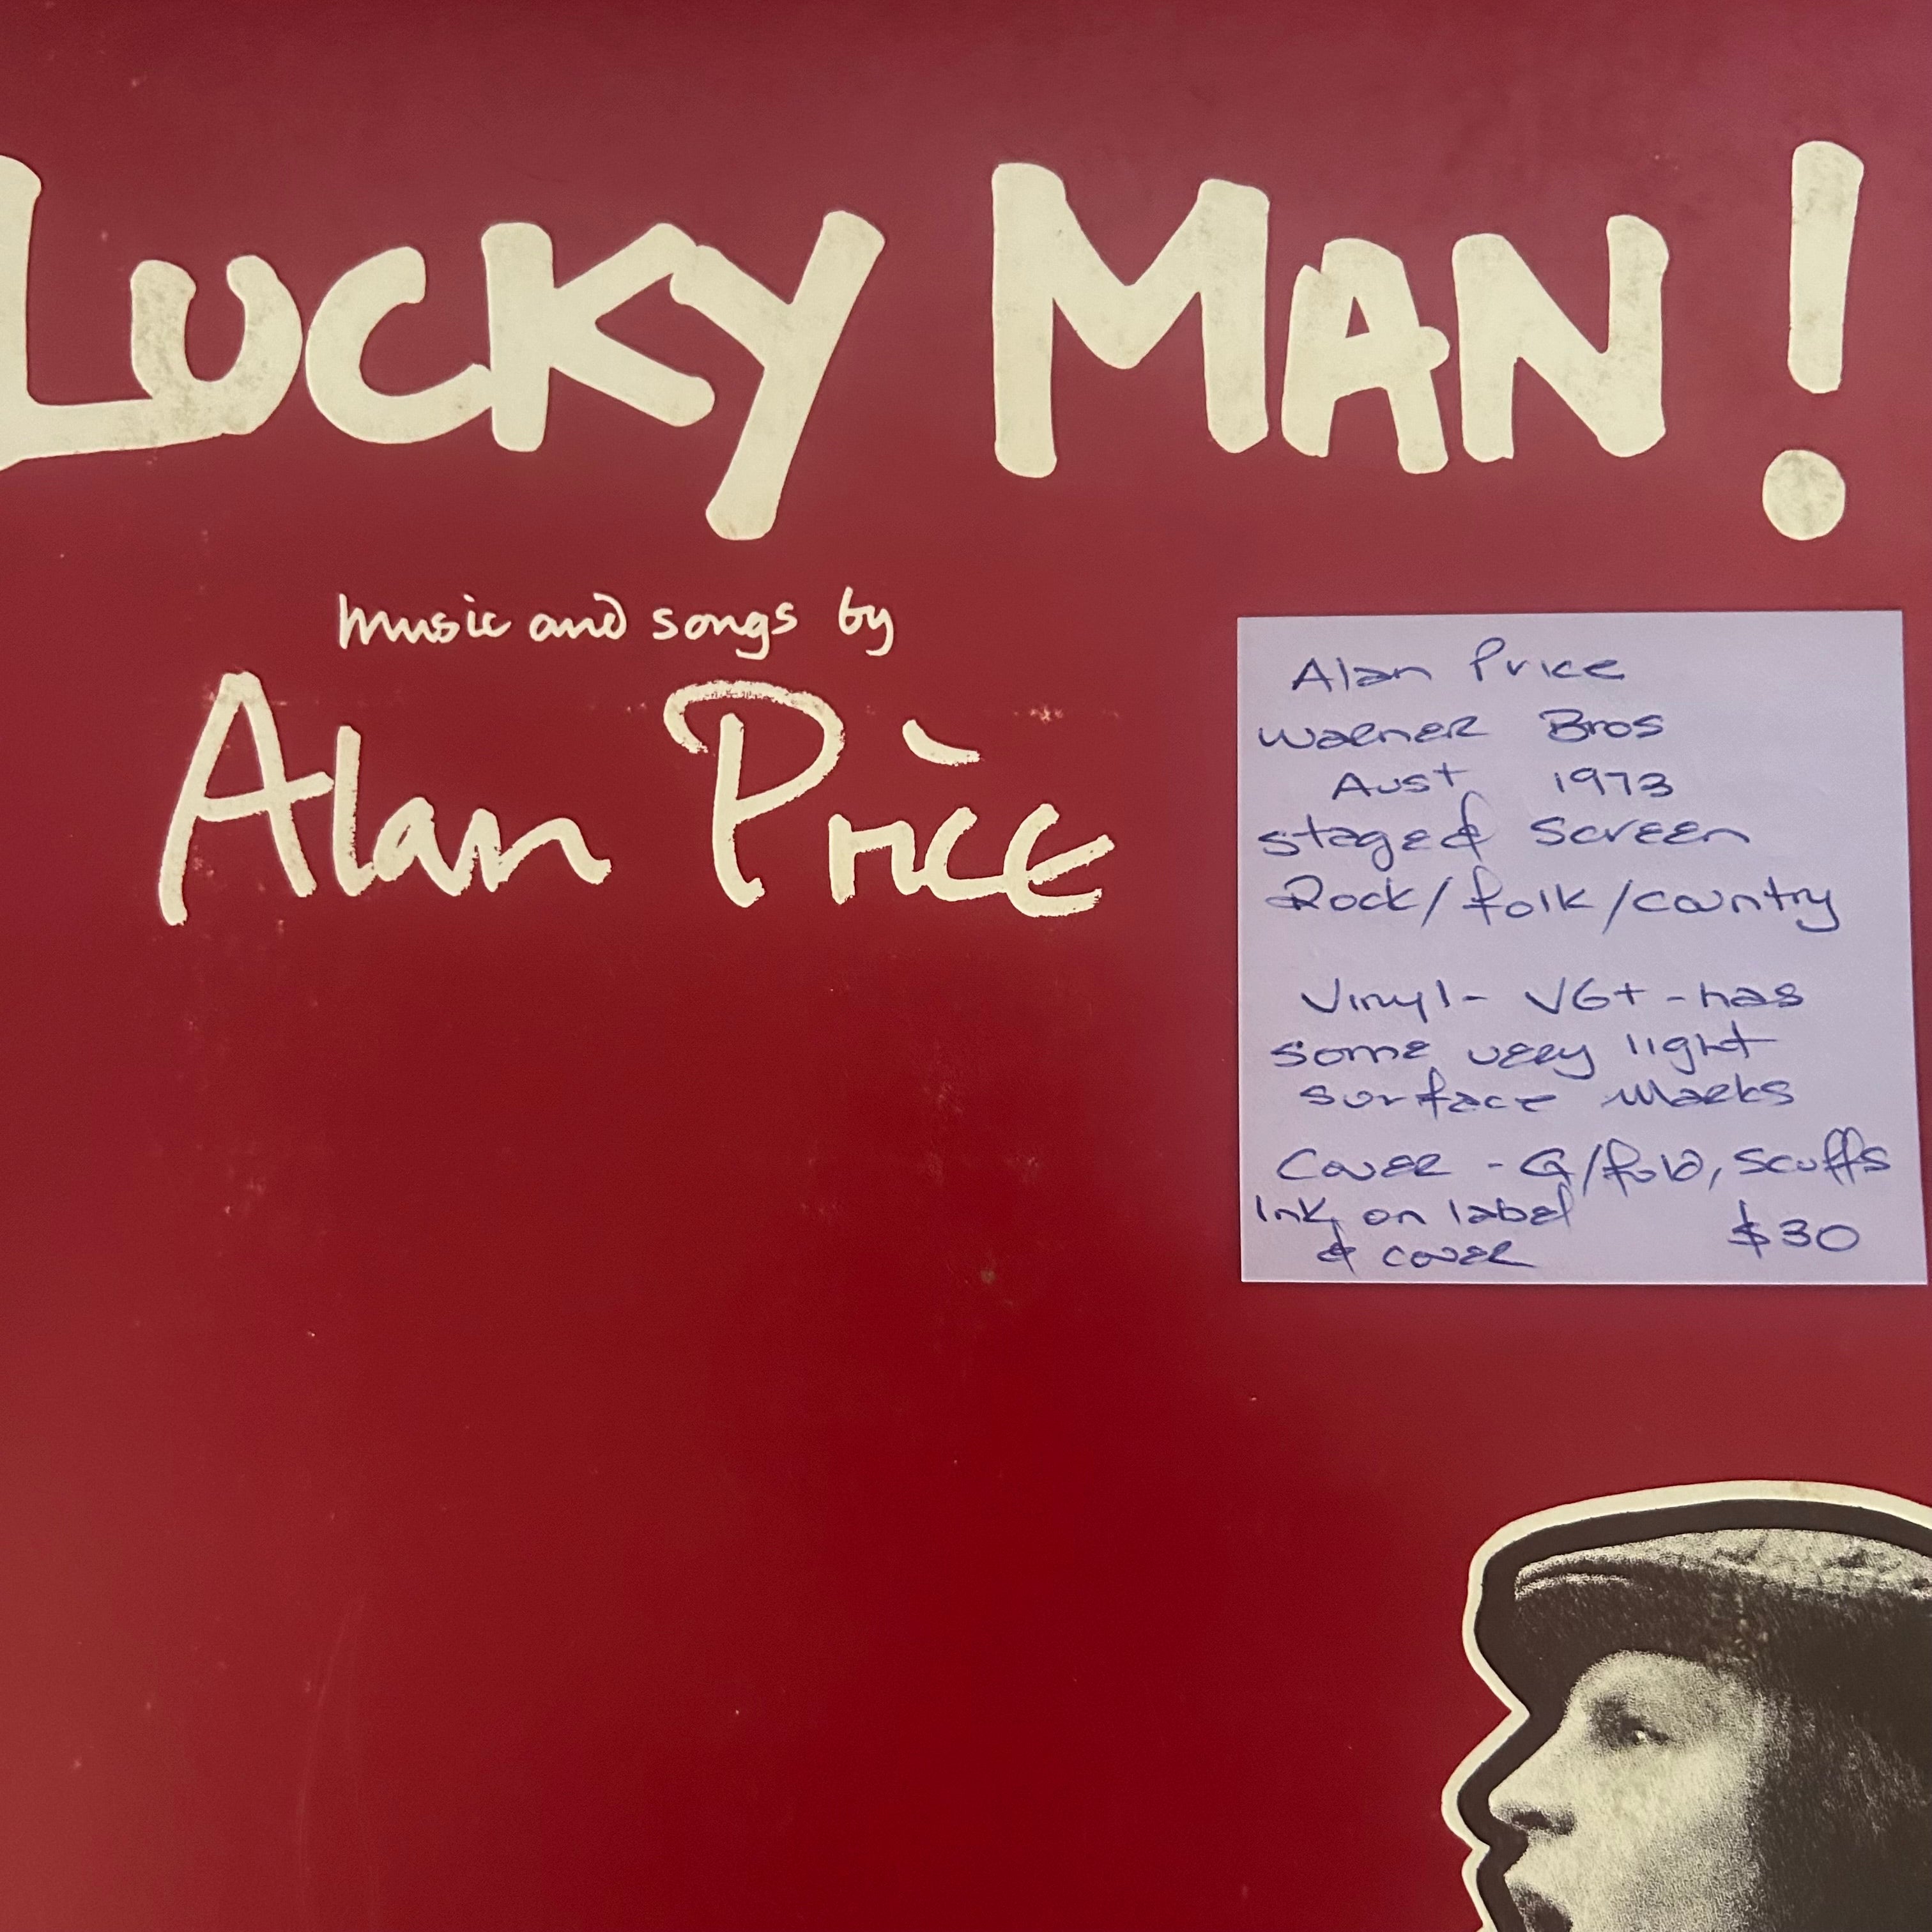 LUCKY MAN!
music and songs by
Alan Price
Alan Price
Warner Bros
Aust 1973
Stage & Screen
Rock/folk/country
Vinyl - VG+ - has
some very light
surface marks
Cover - G/fold, scuffs
Ink on label
& cover $30